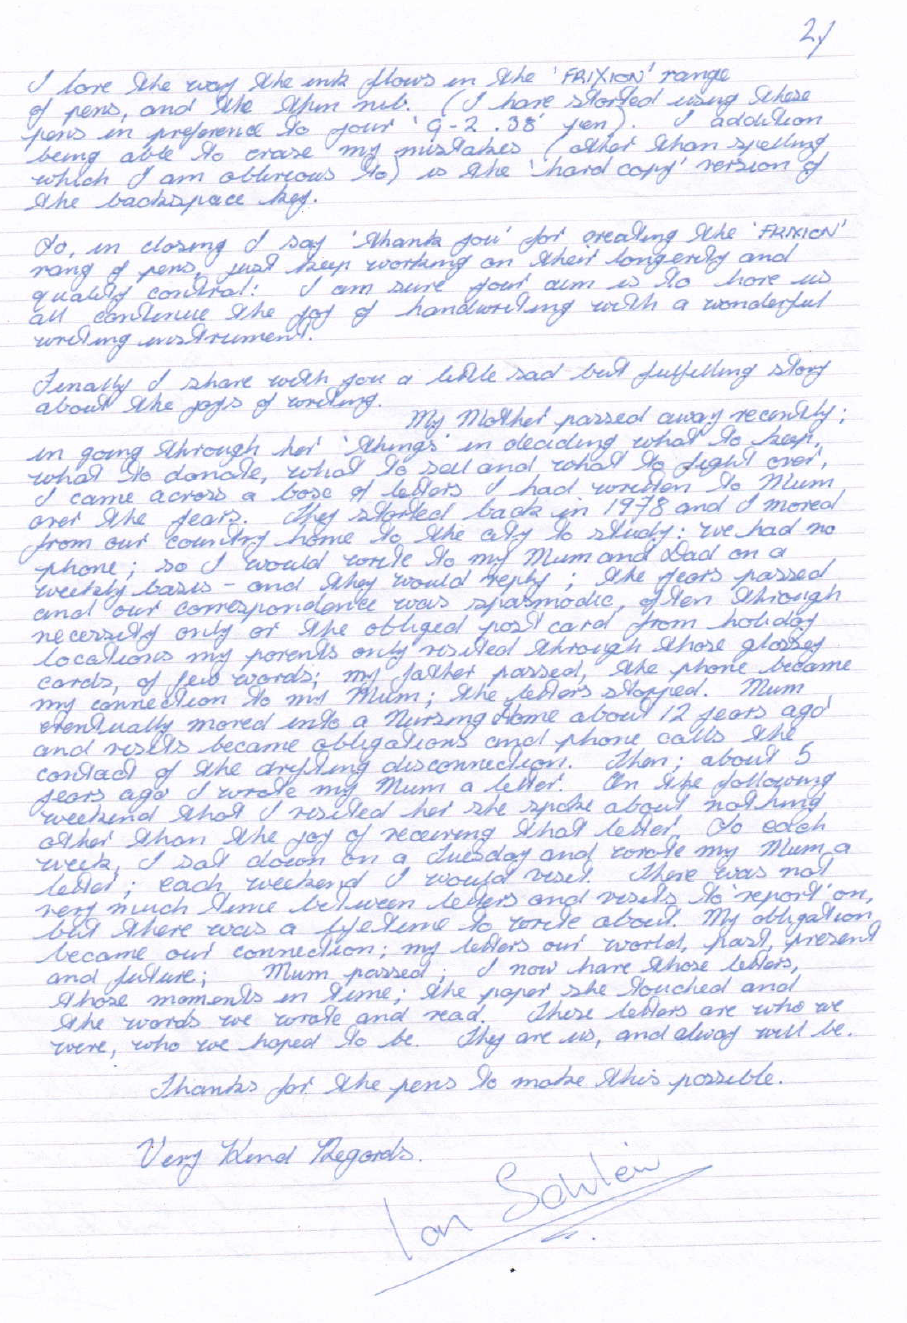 2/
I love the way the ink flows in the 'FRIXION' range
of pens, and the thin nib. (I have started using these
pens in preference to your 'G-2 .38' pen). I addition
being able to erase my mistakes (other than spelling
which I am oblivious to) is the 'hard copy' version of
the backspace key.
So, in closing I say 'thank you' for creating the 'FRIXION'
rang of pens, just keep working on their longevity and
quality control! I am sure your aim is to have us
all continue the joy of handwriting with a wonderful
writing instrument.
Finally I share with you a little sad but fulfilling story
about the joys of writing.
My Mother passed away recently;
in going through her 'things' in deciding what to keep,
what to donate, what to sell and what to fight over,
I came across a box of letters I had written to Mum
over the years. They started back in 1978 and I moved
from our country home to the city to study: we had no
phone; so I would wrote to my Mum and Dad on a
weekly basis - and they would reply; the years passed
and our correspondence was spasmodic, often through
necessity only or the obliged post card from holiday
locations my parents only visited through those glossy
cards, of few words; my father passed, the phone became
my connection to my Mum; the letters stopped. Mum
eventually moved into a Nursing Home about 12 years ago
and visits became obligations and phone calls the
contact of the drifting disconnection. Then; about 5
years ago I wrote my Mum a letter. On the following
weekend that I visited her she spoke about nothing
other than the joy of receiving that letter. So each
week, I sat down on a Tuesday and wrote my Mum a
letter; each weekend I would visit. There was not
very much time between letters and visits to 'report' on,
but there was a lifetime to wrote about. My obligation
became our connection; my letters our world, past, present
and future; Mum passed; I now have those letters,
those moments in time; the paper she touched and
the words we wrote and read. These letters are who we
were, who we hoped to be. They are us, and alway will be.
Thanks for the pens to make this possible.
Very Kind Regards.
Ian